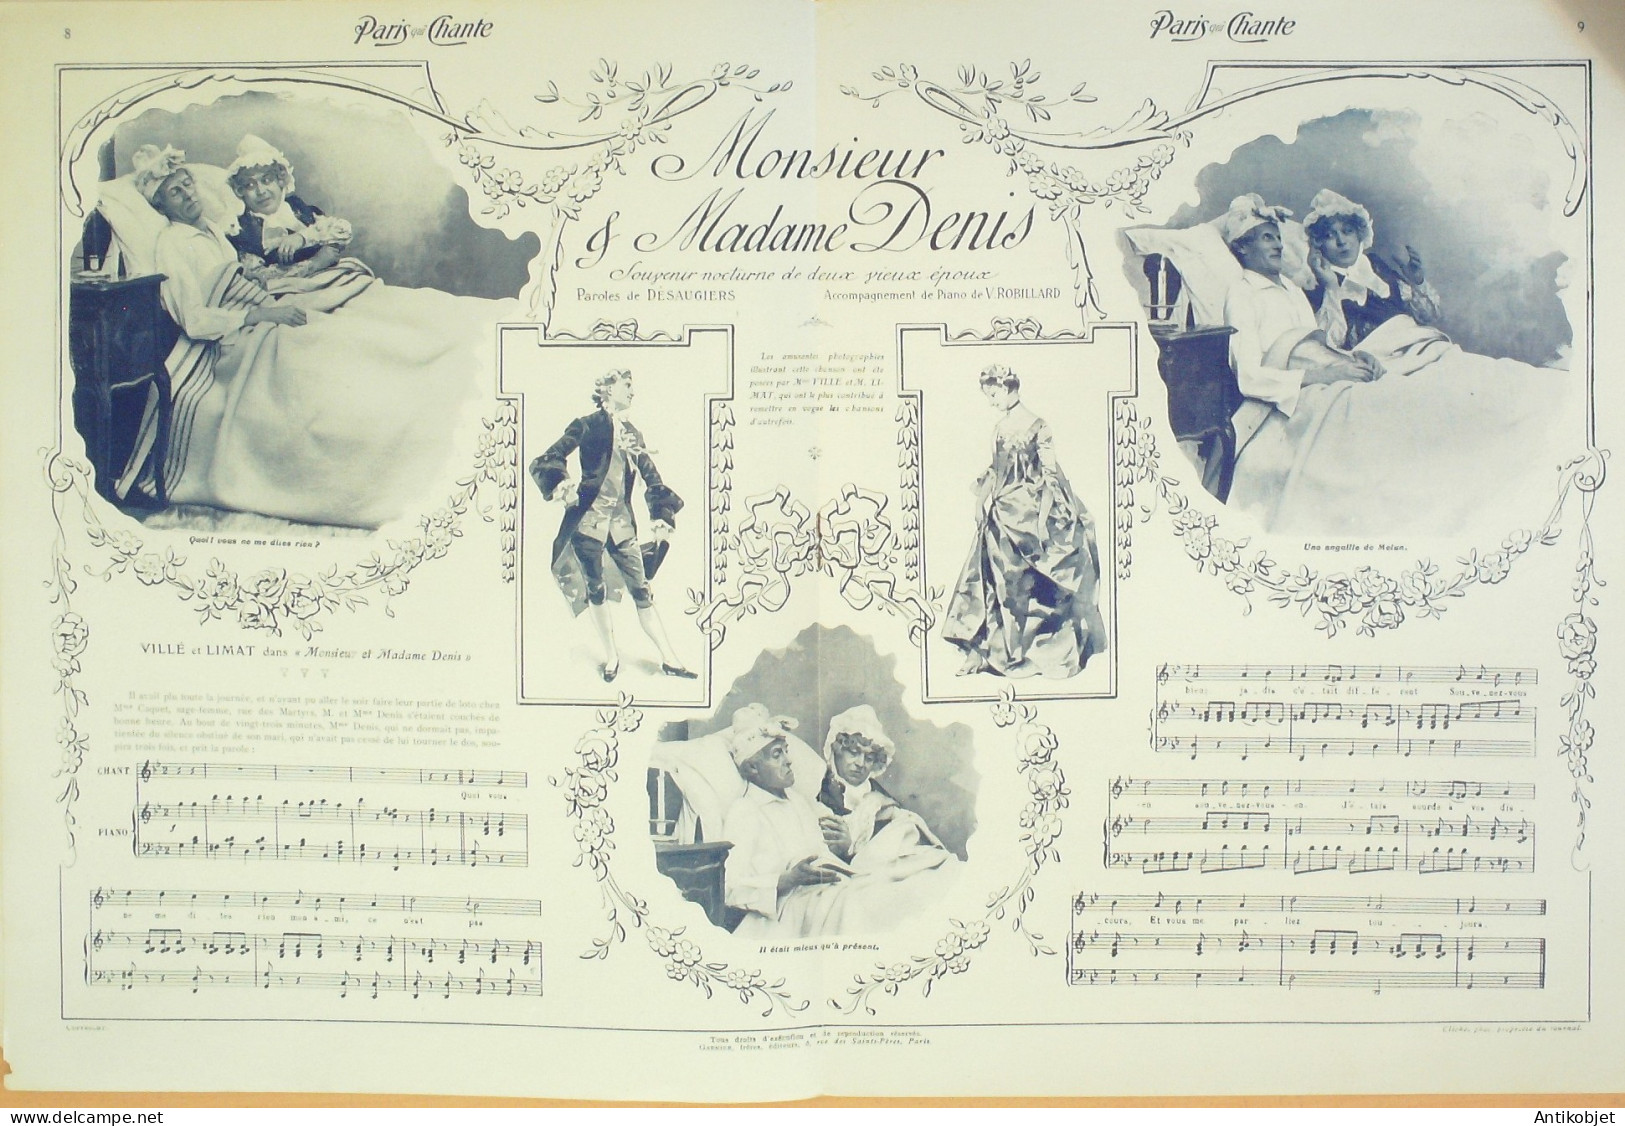 8
Paris qui Chante
Paris qui Chante
9
Monsieur
& Madame Denis
Souvenir nocturne de deux vieux époux
Paroles de DÉSAUGIERS
Accompagnement de Piano de V. ROBILLARD
Les amusantes photographies
illustrant cette chanson ont été
posées par Mme VILLÉ et M. LI-
MAT, qui ont le plus contribué à
remettre en vogue les chansons
d'autrefois.
Quoi! vous ne me dites rien?
Une anguille de Melun.
Il était mieux qu'à présent.
VILLÉ et LIMAT dans « Monsieur et Madame Denis »
Il avait plu toute la journée, et n'ayant pu aller le soir faire leur partie de loto chez
Mme Caquet, sage-femme, rue des Martyrs, M. et Mme Denis s'étaient couchés de
bonne heure. Au bout de vingt-trois minutes, Mme Denis, qui ne dormait pas, impa-
tientée du silence obstiné de son mari, qui n'avait pas cessé de lui tourner le dos, sou-
pira trois fois, et prit la parole :
CHANT
Quoi vous
PIANO
f
ne me di-tes rien mon a-mi, ce n'est pas
bien; ja-dis c'é-tait dif-fé-rent Sou-ve-nez-vous
-en sou-ve-nez-vous-en. J'é-tais sourde à vos dis-
-cours, Et vous me par-liez tou-jours.
Cliché, phot. propriété du journal.
Tous droits d'exécution et de reproduction réservés.
GARNIER, frères, éditeurs, 6, rue des Saints-Pères, Paris.
Antikobjet